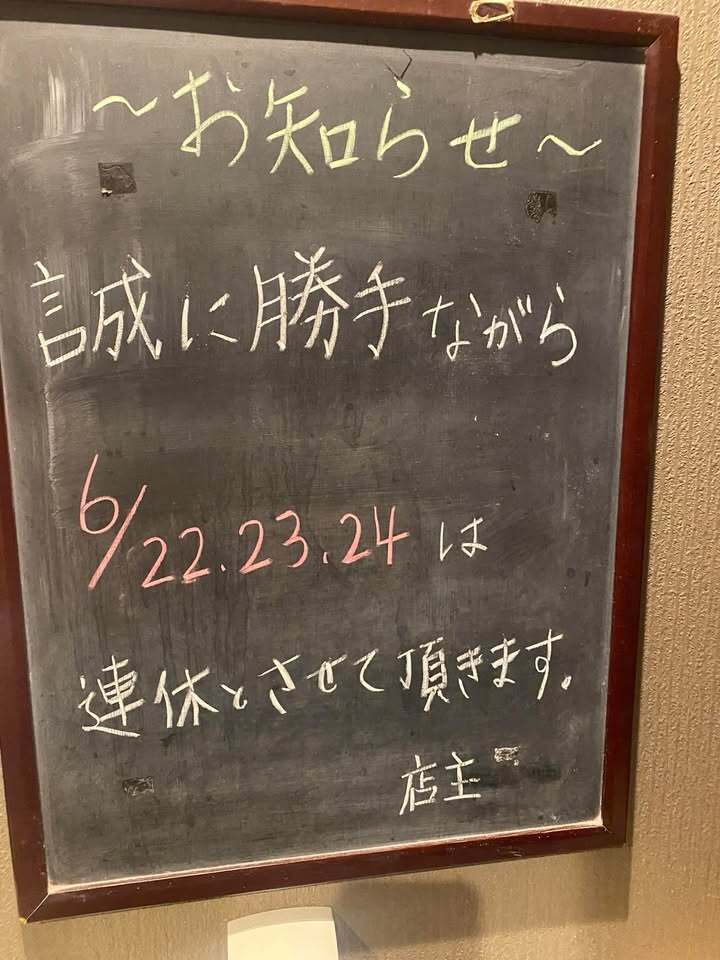 ～お知らせ～
誠に勝手ながら
6/22.23.24 は
連休とさせて頂きます。
店主